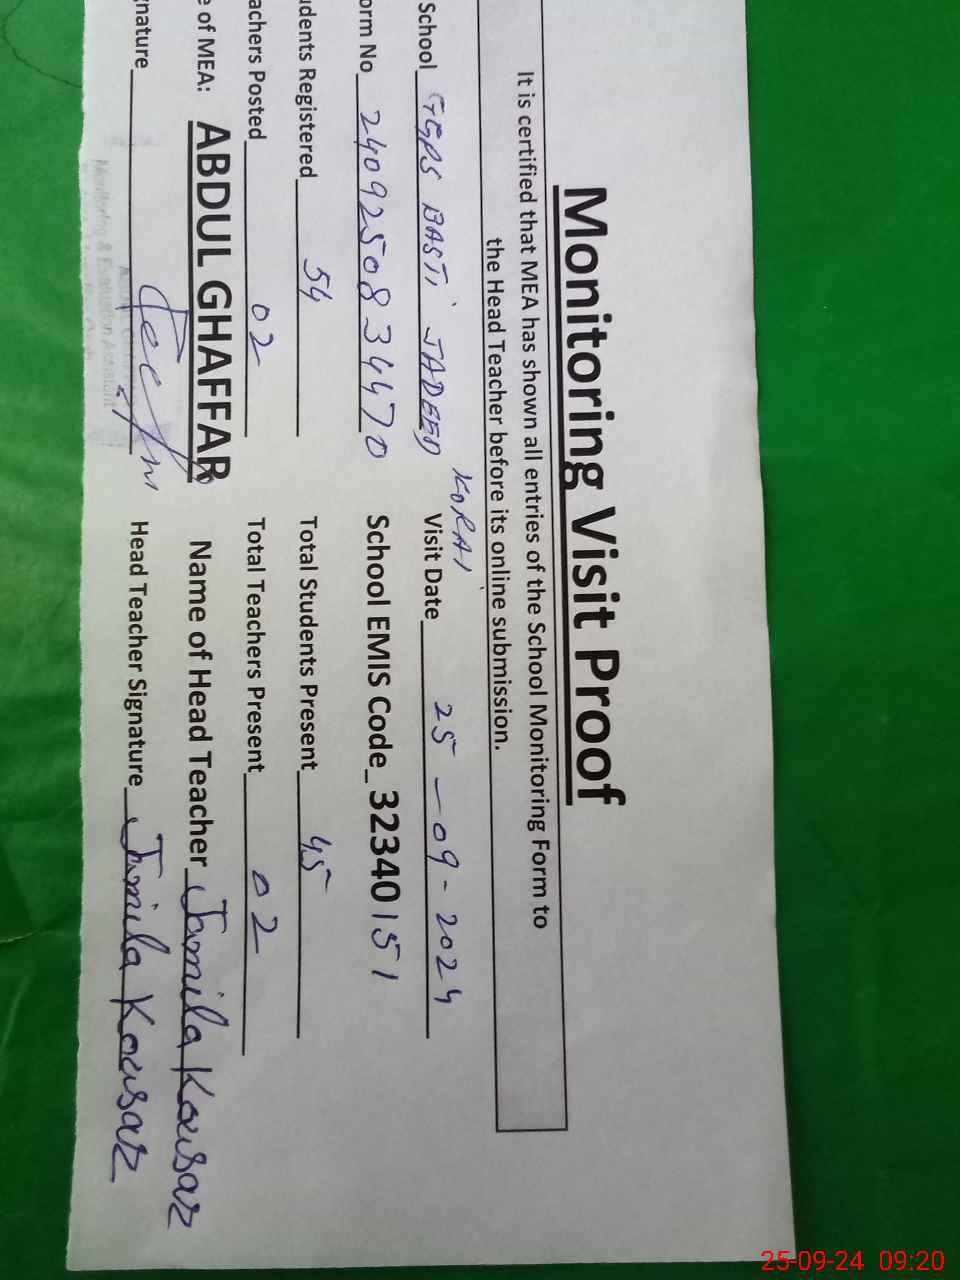 Monitoring Visit Proof
It is certified that MEA has shown all entries of the School Monitoring Form to
the Head Teacher before its online submission.
School GGPS BASTI JADEED KORAI Visit Date 25-09-2024
orm No 24092508 34470 School EMIS Code 32340151
udents Registered 54 Total Students Present 45
achers Posted 02 Total Teachers Present 02
e of MEA: ABDUL GHAFFAR Name of Head Teacher Jamila Kousar
gnature Head Teacher Signature Jamila Kousar
Monitoring & Evaluation Assistant
25-09-24 09:20